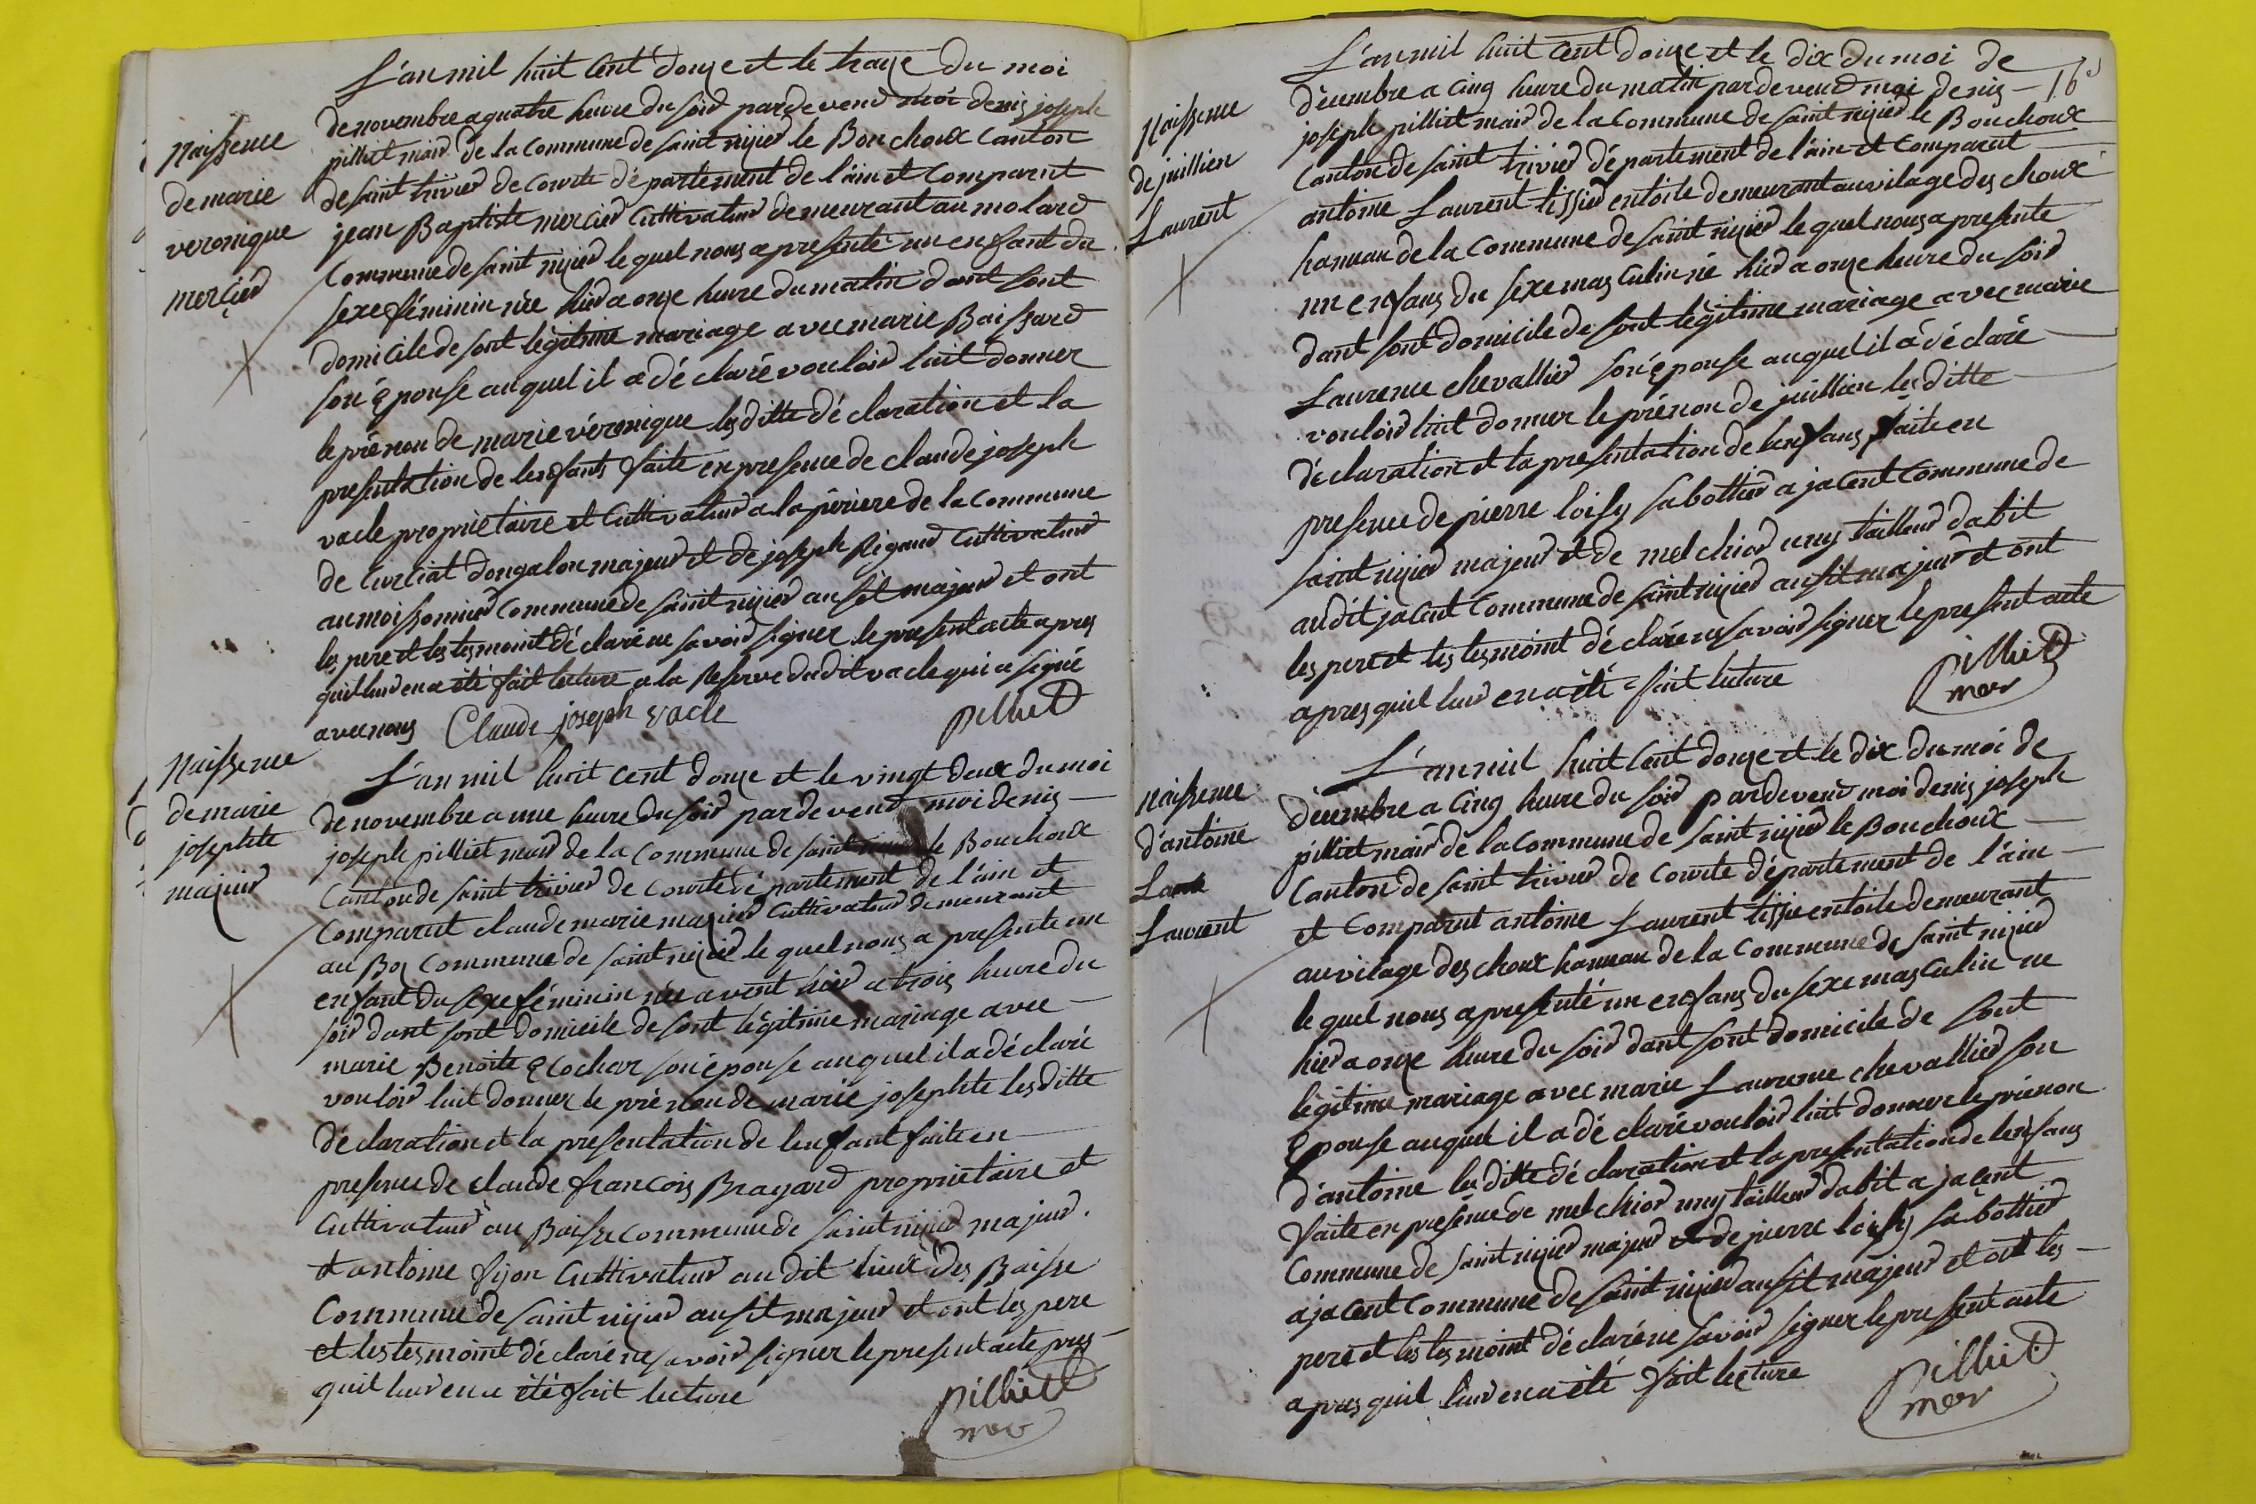 L'an mil huit cent douze et le traize du moi
Naissence
de marie
veronique
mercier
de novembre a quatre heure du soir pardevend moi denis joseph
pilliet mair de la commune de saint nizier le Bouchoux canton
de saint trivier de courte département de l'ain et comparut
jean Baptiste mercier cuttivateur demeurant au molard
commune de saint nizier le quel nous a presenté un enfant du
sexe féminin née hier a onze heure du matin dant sont
domicile de sont légitime mariage avec marie Baissard
son épouse auquel il a déclaré vouloir luit donner
le prénon de marie véronique lesditte déclaration et la
presentation de lenfants faite en presence de claude joseph
vacle proprietaire et cuttivateur a la périere de la commune
de curciat dongalon majeur et de joseph Rigaud cuttivateur
au moissonnier commune de saint nizier ausit majeur et ont
les pere et les tesmoint déclaré ne savoir signer le present acte apres
quil leur en a été fait lecture a la Reserve dudit vacle qui a signé
avec nous Claude joseph vacle pilliet
Naissence
de marie
josephte
majuir
L'an mil huit cent douze et le vingt deux du moi
de novembre a une heure du soir pardevend moi denis
joseph pilliet mair de la commune de saint nizier le Bouchoux
canton de saint trivier de courte département de l'ain et
comparut claude marie mazuir cuttivateur demeurant
au Boz commune de saint nizier le quel nous a presente un
enfant du sexe féminin née avent hier a trois heure du
soir dant sont domicile de sont légitime mariage avec
marie Benoite Ecochar son épouse auquel il a déclaré
vouloir luit donner le prénon de marie josephte lesditte
déclaration et la presentation de lenfant faite en
presence de claude francois Brayard proprietaire et
cuttivateur au Baisse commune de saint nizier majeur.
et antoine fijon cuttivateur au dit lieux des Baisse
commune de saint nizier ausit majeur et ont les pere
et les tesmoint déclaré ne savoir signer le present acte pres
quil leur en a été fait lecture pilliet
mer
16e
L'an mil huit cent douze et le dix du moi de
Naissence
de juillien
Laurent
décembre a cinq heure du matin pardevend moi denis
joseph pilliet mair de la commune de saint nizier le Bouchoux
canton de saint trivier département de l'ain et comparut
antoine Laurent tissier en toile demeurant au vilage des choux
hammau de la commune de saint nizier le quel nous a presente
un enfans du sexe masculin né hier a onze heure du soir
dant sont domicile de sont légitime mariage avec marie
Laurence chevallier son épouse auquel il a déclaré
vouloir luit donner le prénon de juillien lesditte
déclaration et la presentation de lenfans faite en
presence de pierre loisy sabottier a jacent commune de
saint nizier majeur et de melchior uny tailleur dabit
audit jacent commune de saint nizier ausit majeur et ont
les pere et les tesmoint déclaré ne savoir signer le present acte
apres quil leur en a été fait lecture pilliet
mer
Naissence
d'antoine
Laurent
L'an mil huit cent douze et le dix du moi de
décembre a cinq heure du soir pardevend moi denis joseph
pilliet mair de la commune de saint nizier le Bouchoux
canton de saint trivier de courte département de l'ain
et comparut antoine Laurent tissie en toile demeurant
au vilage des choux hammau de la commune de saint nizier
le quel nous a presenté un enfans du sexe masculin ne
hier a onze heure du soir dant sont domicile de sont
légitime mariage avec marie Laurence chevallier son
Epouse auquel il a déclaré vouloir luit donner le prénon
d'antoine lesditte déclaration et la presentation de lenfans
faite en presence de melchior uny tailleur dabit a jacent
commune de saint nizier majeur et de pierre loisy sabottier
a jacent commune de saint nizier ausit majeur et ont les
pere et les tesmoint déclaré ne savoir signer le present acte
apres quil leur en a été fait lecture pilliet
mer